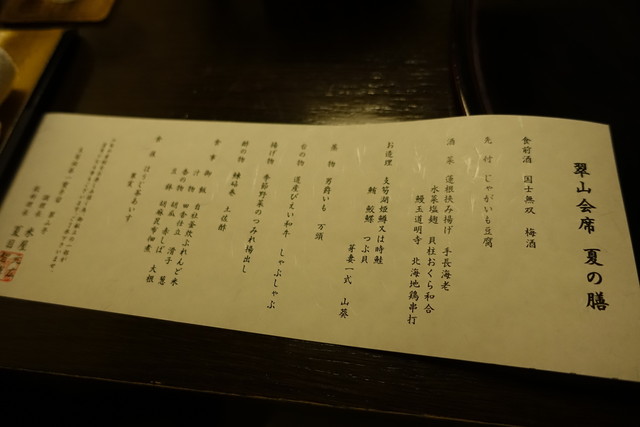 翠山会席 夏の膳
食前酒 国士無双 梅酒
先付 じゃがいも豆腐
酒菜 蓮根挟み揚げ 手長海老
水菜塩麹 貝柱おくら和合
鰻玉道明寺 北海地鶏串打
お造理 支笏湖姫鱒又は時鮭
鮪 鮫鰈 つぶ貝
芽妻一式 山葵
蒸物 男爵いも 万頭
台の物 道産びえい和牛 しゃぶしゃぶ
揚げ物 季節野菜のつみれ揚出し
酢の物 土佐酢
食事 御飯 自社釜炊ぶれんど米
汁物 田舎仕立 滑子 葱
香の物 胡瓜 赤しば 大根
豆鉢 胡麻昆布佃煮
甘味 ほうじ茶あいす
果実